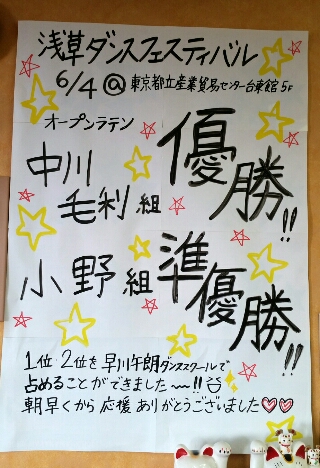 浅草ダンスフェスティバル
6/4 @ 東京都立産業貿易センター台東館 5F
オープンラテン
中川
毛利組 優勝!!
小野組 準優勝!!
1位・2位を早川午朗ダンススクールで
占めることができました〜!!
朝早くから応援ありがとうございました♡♡